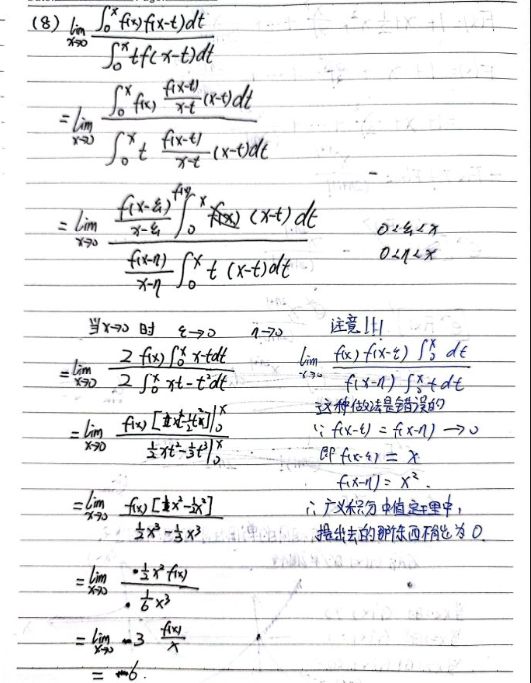 (8) lim x→0 ∫₀ˣ f(x)f(x-t)dt / ∫₀ˣ tf(x-t)dt
= lim x→0 ∫₀ˣ f(x) f(x-t)/(x-t) (x-t)dt / ∫₀ˣ t f(x-t)/(x-t) (x-t)dt
= lim x→0 f(x-ξ)/(x-ξ) f(x) ∫₀ˣ (x-t)dt / f(x-η)/(x-η) ∫₀ˣ t(x-t)dt
0<ξ<x
0<η<x
当x→0时 ξ→0 η→0
= lim x→0 2f(x)∫₀ˣ x-t dt / 2∫₀ˣ xt-t²dt
= lim x→0 f(x)[xt-½t²]|₀ˣ / ½xt²-⅓t³|₀ˣ
= lim x→0 f(x)[x²-½x²] / ½x³-⅓x³
= lim x→0 ½x²f(x) / ⅙x³
= lim x→0 3 f(x)/x
= 6.
注意!!!
lim x→0 f(x)f(x-ξ)∫₀ˣ dt / f(x-η)∫₀ˣ t dt
这种做法是错误的
∵ f(x-ξ) = f(x-η) → 0
即 f(x-ξ) = x
f(x-η) = x².
∴ 广义积分中值定理中,
提出去的那东西不能为0.